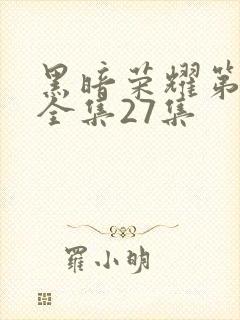 黑暗荣耀第
全集27集
羅小明